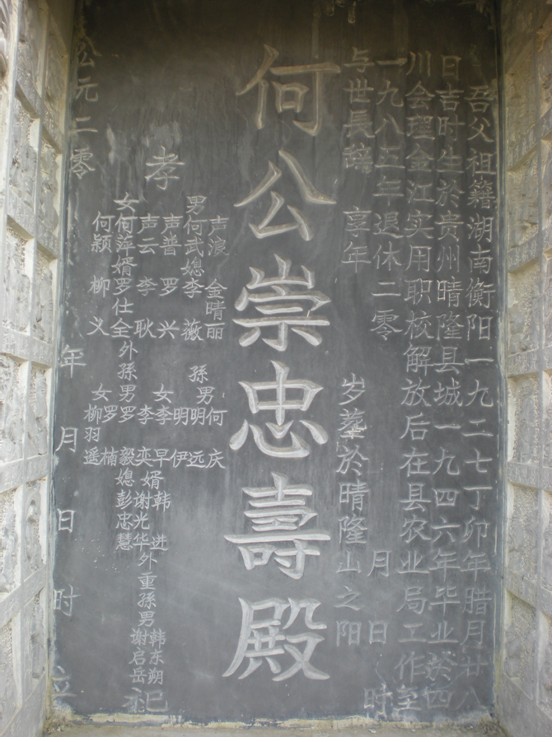 吾父祖籍湖南衡阳一九二七丁卯年腊月廿八
日吉时生於贵州晴隆县城一九四六年毕业於四
川会理金江实用职校解放后在县农业局工作至
一九八五年退休二零 月 日 时
与世長辞 享年 岁葬於晴隆山之阳
何公崇忠壽殿
孝
声浪 金晴丽
男何武媳李薇
声普 罗兴
声云 李耿
女何萍婿罗仕全
何颖 柳义
孫男何庆
明远
明伊
女李早婿韩进
李奕 谢光华
外孫男罗毅媳彭忠慧
罗楠
女柳羽遥
外重孫男韩东朔
谢启岳
祀
公元二零 年 月 日 时 立